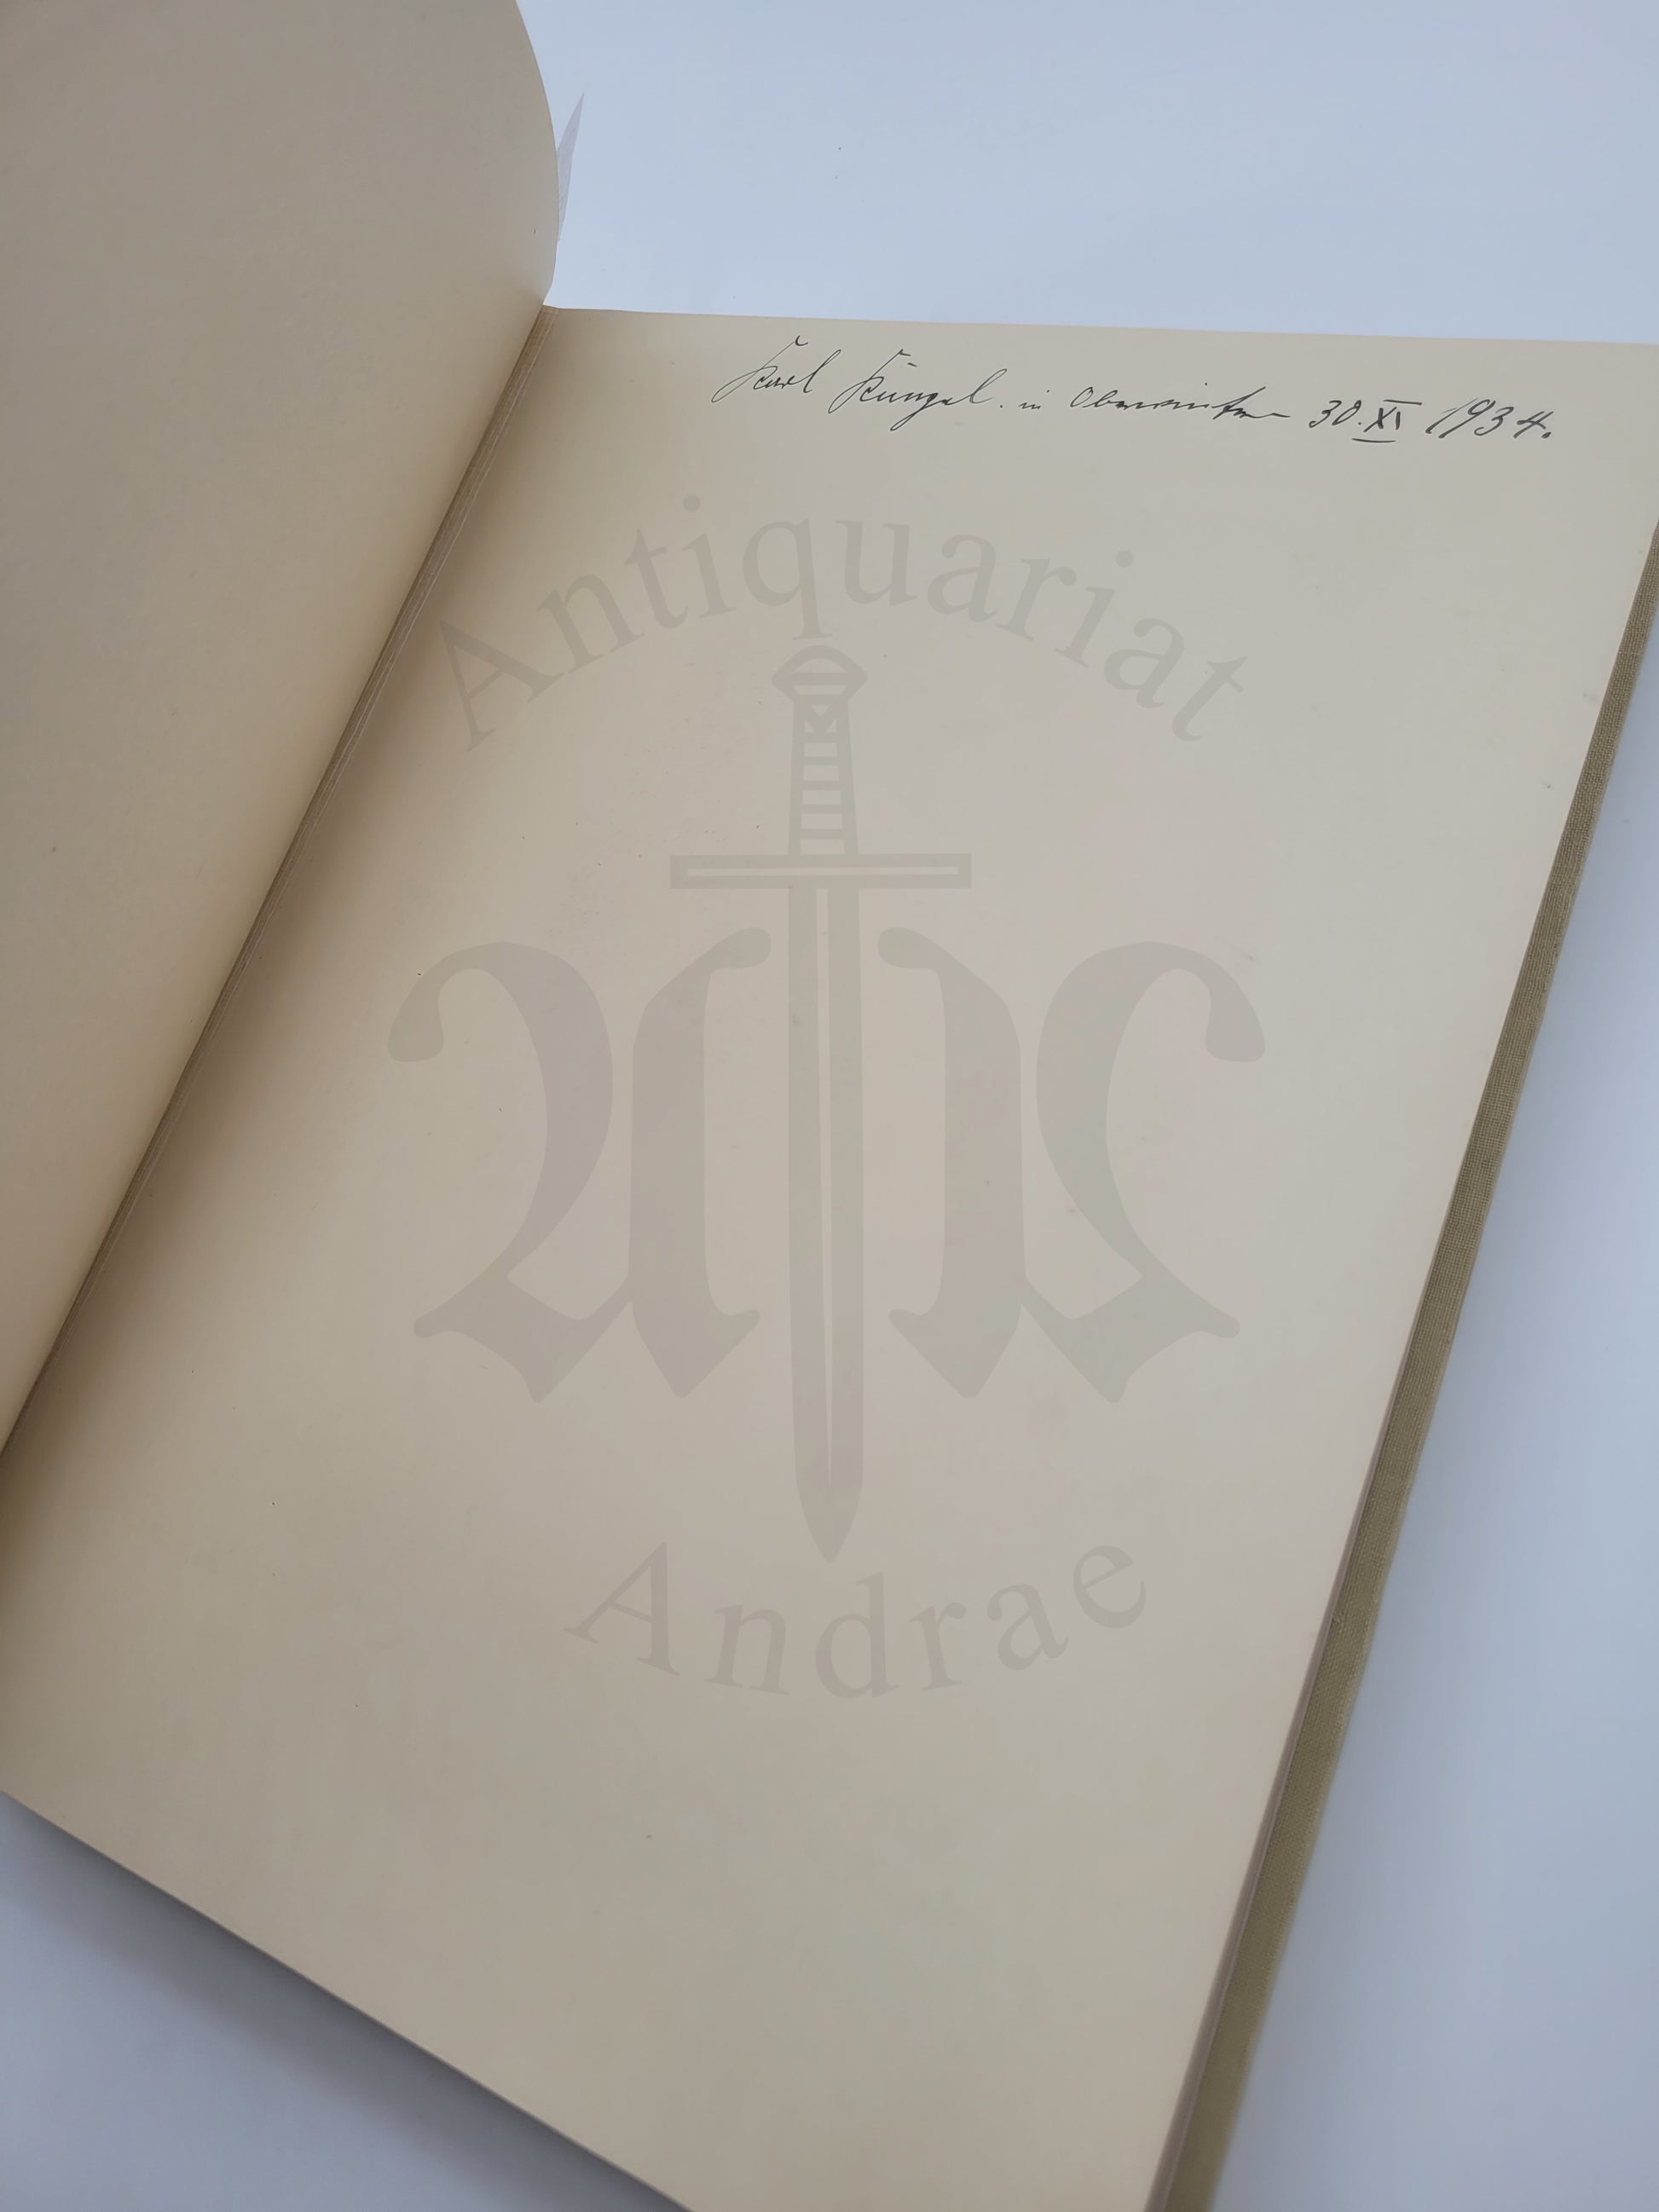 Karl Küngel. in 30.XI 1934.
Antiquariat
Andrae